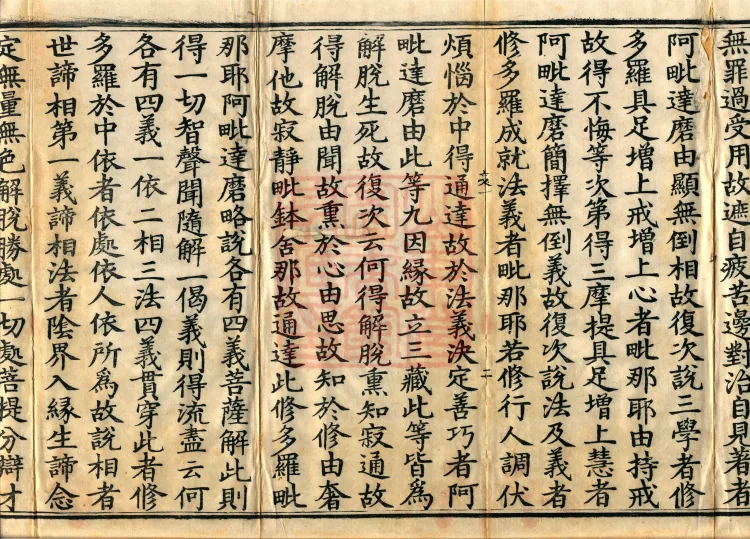 無罪過受用故遮自疲苦邊對治自見著者
阿毗達磨由顯無倒相故復次說三學者修
多羅具足增上戒增上心者毗那耶由持戒
故得不悔等次第得三摩提具足增上慧者
阿毗達磨簡擇無倒義故復次說法及義者
修多羅成就法義者毗那耶若修行人調伏
煩惱於中得通達故於法義決定善巧者阿
毗達磨由此等九因緣故立三藏此等皆爲
解脫生死故復次云何得解脫熏知寂通故
得解脫由聞故熏於心由思故知於修由奢
摩他故寂靜毗鉢舍那故通達此修多羅毗
那耶阿毗達磨略說各有四義菩薩解此則
得一切智聲聞隨解一偈義則得流盡云何
各有四義一依二相三法四義貫穿此者修
多羅於中依者依處依人依所爲故說相者
世諦相第一義諦相法者陰界入緣生諦念
定無量無色解脫勝處一切處菩提分辯才
二